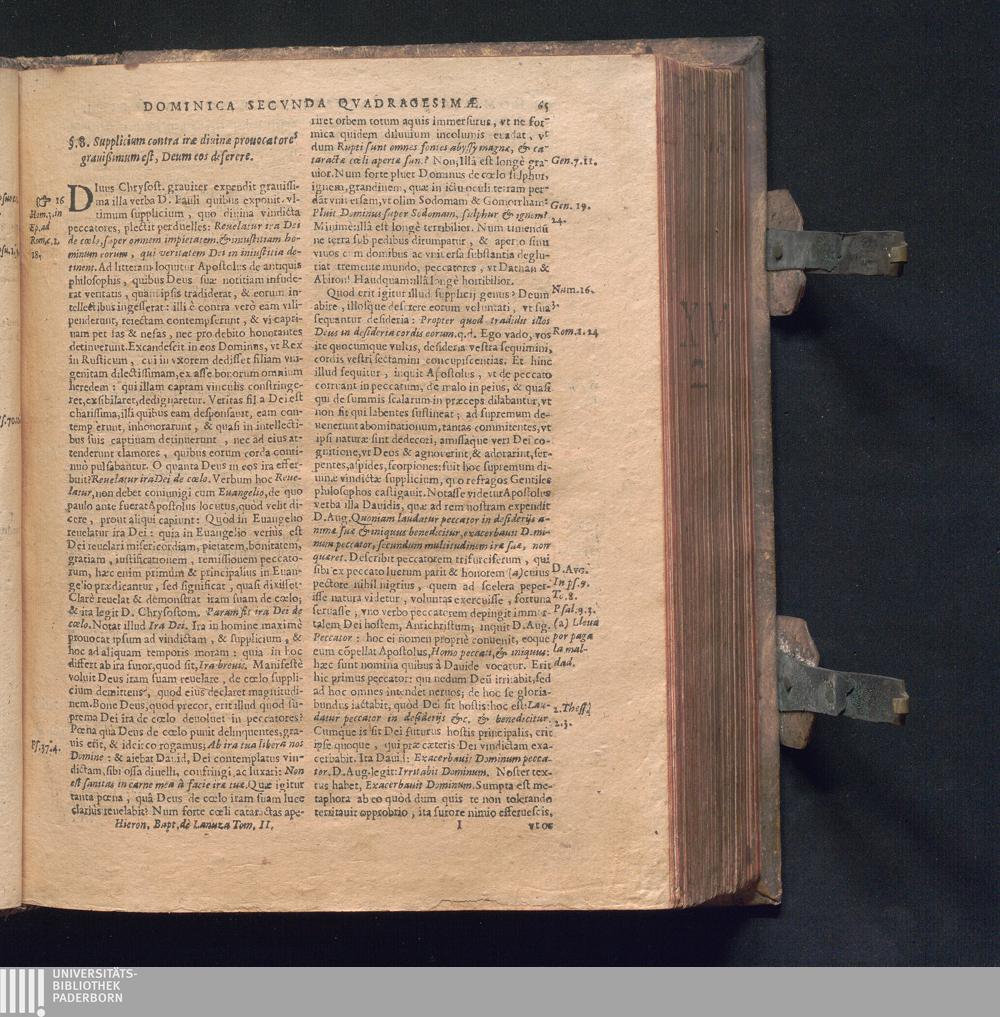 DOMINICA SECVNDA QVADRAGESIMÆ. 65
§. 8. Supplicium contra iræ diuinæ prouocatores
grauissimum est, Deum eos deserere.
16
Hom. 3. in
Ep. ad
Rom. c. 1.
18.
DIuus Chrysost. grauiter expendit grauissi-
ma illa verba D. Pauli quibus exponit vl-
timum supplicium, quo diuina vindicta
peccatores, plectit perduelles: Reuelatur ira Dei
de cœlo, super omnem impietatem, & iniustitiam ho-
minum eorum, qui veritatem Dei in iniustitia de-
tinent. Ad litteram loquitur Apostolus de antiquis
philosophis, quibus Deus suæ notitiam infude-
rat veritatis, quam ipsis tradiderat, & eorum in-
tellectibus ingesserat: illi è contra vero eam vili-
penderunt, reiectam contempserunt, & vi capti-
uam per fas & nefas, nec pro debito honorantes
detinuerunt. Excandescit in eos Dominus, vt Rex
in Rusticum, cui in vxorem dedisset filiam vni-
genitam dilectissimam, ex asse bonorum omnium
heredem: qui illam captam vinculis constringe-
ret, exsibilaret, dedignaretur. Veritas filia Dei est
charissima; illi quibus eam desponsauit, eam con-
tempserunt, inhonorarunt, & quasi in intellecti-
bus suis captiuam detinuerunt, nec ad eius at-
tenderunt clamores, quibus eorum corda conti-
nuò pulsabantur. O quanta Deus in eos ira effer-
buit? Reuelatur ira Dei de cœlo. Verbum hoc Reue-
latur, non debet coniungi cum Euangelio, de quo
paulo ante fuerat Apostolus locutus, quod velit di-
cere, prout aliqui capiunt: Quòd in Euangelio
reuelatur ira Dei: quia in Euangelio verius est
Dei reuelari misericordiam, pietatem, bonitatem,
gratiam, iustificationem, remissionem peccato-
rum, hæc enim primùm & principalius in Euan-
gelio prædicantur, sed significat, quasi dixisset.
Clarè reuelat & demonstrat iram suam de cœlo;
& ita legit D. Chrysostom. Param fit ira Dei de
cœlo. Notat illud Ira Dei. Ira in homine maximè
prouocat ipsum ad vindictam, & supplicium, &
hoc ad aliquam temporis moram: quia in hoc
differt ab ira furor, quod sit, Ira breuis. Manifestè
voluit Deus iram suam reuelare, de cœlo suppli-
cium demittens, quod eius declaret magnitudi-
nem. Bone Deus, quod precor, erit illud quod su-
prema Dei ira de cœlo deuoluet in peccatores?
Pœna quâ Deus de cœlo punit delinquentes, gra-
uis erit, & idcirco rogamus; Ab ira tua libera nos
Domine: & aiebat Dauid, Dei contemplatus vin-
dictam, sibi ossa diuelli, confringi, ac luxari: Non
est sanitas in carne mea à facie iræ tuæ. Quæ igitur
tanta pœna, quâ Deus de cœlo iram suam luce
clarius reuelabit? Num forte cœli cataractas ape-
Ps. 37. 4.
Hieron. Bapt. de Lanuza Tom. II.
riret orbem totum aquis immersurus, vt ne for-
mica quidem diluuium incolumis euadat, vt
dum Rupti sunt omnes fontes abyssy magnæ, & ca-
taractæ cœli apertæ sunt? Non; Illâ est longè gra-
uior. Num forte pluet Dominus de cœlo sulphur,
ignem, grandinem, quæ in ictu oculi terram per-
dat vniuersam, vt olim Sodomam & Gomorrham:
Pluit Dominus super Sodomam, sulphur & ignem?
Minimè: illâ est longè terribilior. Num timendū
ne terra sub pedibus dirumpatur, & aperto sinu
viuos cum domibus ac vniuersa substantia deglu-
tiat tremente mundo, peccatores, vt Dathan &
Abiron? Haudquam: illâ longè horribilior.
Quod erit igitur illud supplicij genus? Deum
abire, illosque deserere eorum voluntati, vt sua
sequantur desideria: Propter quod tradidit illos
Deus in desideria cordis eorum. q. d. Ego vado, vos
ite quocumque vultis, desideria vestra sequimini,
cordis vestri sectamini concupiscentias. Et hinc
illud sequitur, inquit Apostolus, vt de peccato
corruant in peccatum, de malo in peius, & quasi
qui de summis scalarum in præceps dilabantur, vt
non sit qui labentes sustineat; ad supremum de-
uenerunt abominationum, tantas committentes, vt
ipsi naturæ sint dedecori, amissaque veri Dei co-
gnitione, vt Deos & agnouerint, & adorarint, ser-
pentes, aspides, scorpiones: fuit hoc supremum di-
uinæ vindictæ supplicium, quo refragos Gentiles
philosophos castigauit. Notasse videtur Apostolus
verba illa Dauidis, quæ ad rem nostram expendit
D. Aug. Quoniam laudatur peccator in desiderijs a-
nimæ suæ & iniquus benedicitur, exacerbauit Domi-
num peccator, secundum multitudinem iræ suæ, non
quæret. Describit peccatorem trifurciferum, qui
sibi ex peccato luerum parit & honorem (a) cuius
pectore nihil nigrius, quem ad scelera peper-
isse natura videtur, voluntas exercuisse, fortuna
seruasse, vno verbo peccatorem depingit immor-
talem Dei hostem, Antichristum; inquit D. Aug.
Peccator: hoc ei nomen propriè conuenit, eoque
eum cōpellat Apostolus, Homo peccati, & iniquus:
hæc sunt nomina quibus à Dauide vocatur. Erit
hic primus peccator: qui nedum Deū irritabit, sed
ad hoc omnes intendet neruos; de hoc se gloria-
bundus iactabit, quòd Dei sit hostis: hoc est: Lau-
datur peccator in desiderijs &c. & benedicitur.
Cumque is sit Dei futurus hostis principalis, erit
ipse quoque, qui præ cæteris Dei vindictam exa-
cerbabit. Ita Dauid: Exacerbauit Dominum pecca-
tor. D. Aug. legit: Irritabit Dominum. Noster tex-
tus habet, Exacerbauit Dominum. Sumpta est me-
taphora ab eo quòd dum quis te non tolerando
territauit opprobrio, ita furore nimio efferuescis,
I
Gen. 7. 11.
Gen. 19.
24.
Num. 16.
3.
Rom. 1. 24
D. Avg.
In ps. 9.
To. 8.
Psal. 9. 3.
(a) Lleua
por paga
la mal-
dad.
2. Thess.
2. 3.
UNIVERSITÄTS-
BIBLIOTHEK
PADERBORN